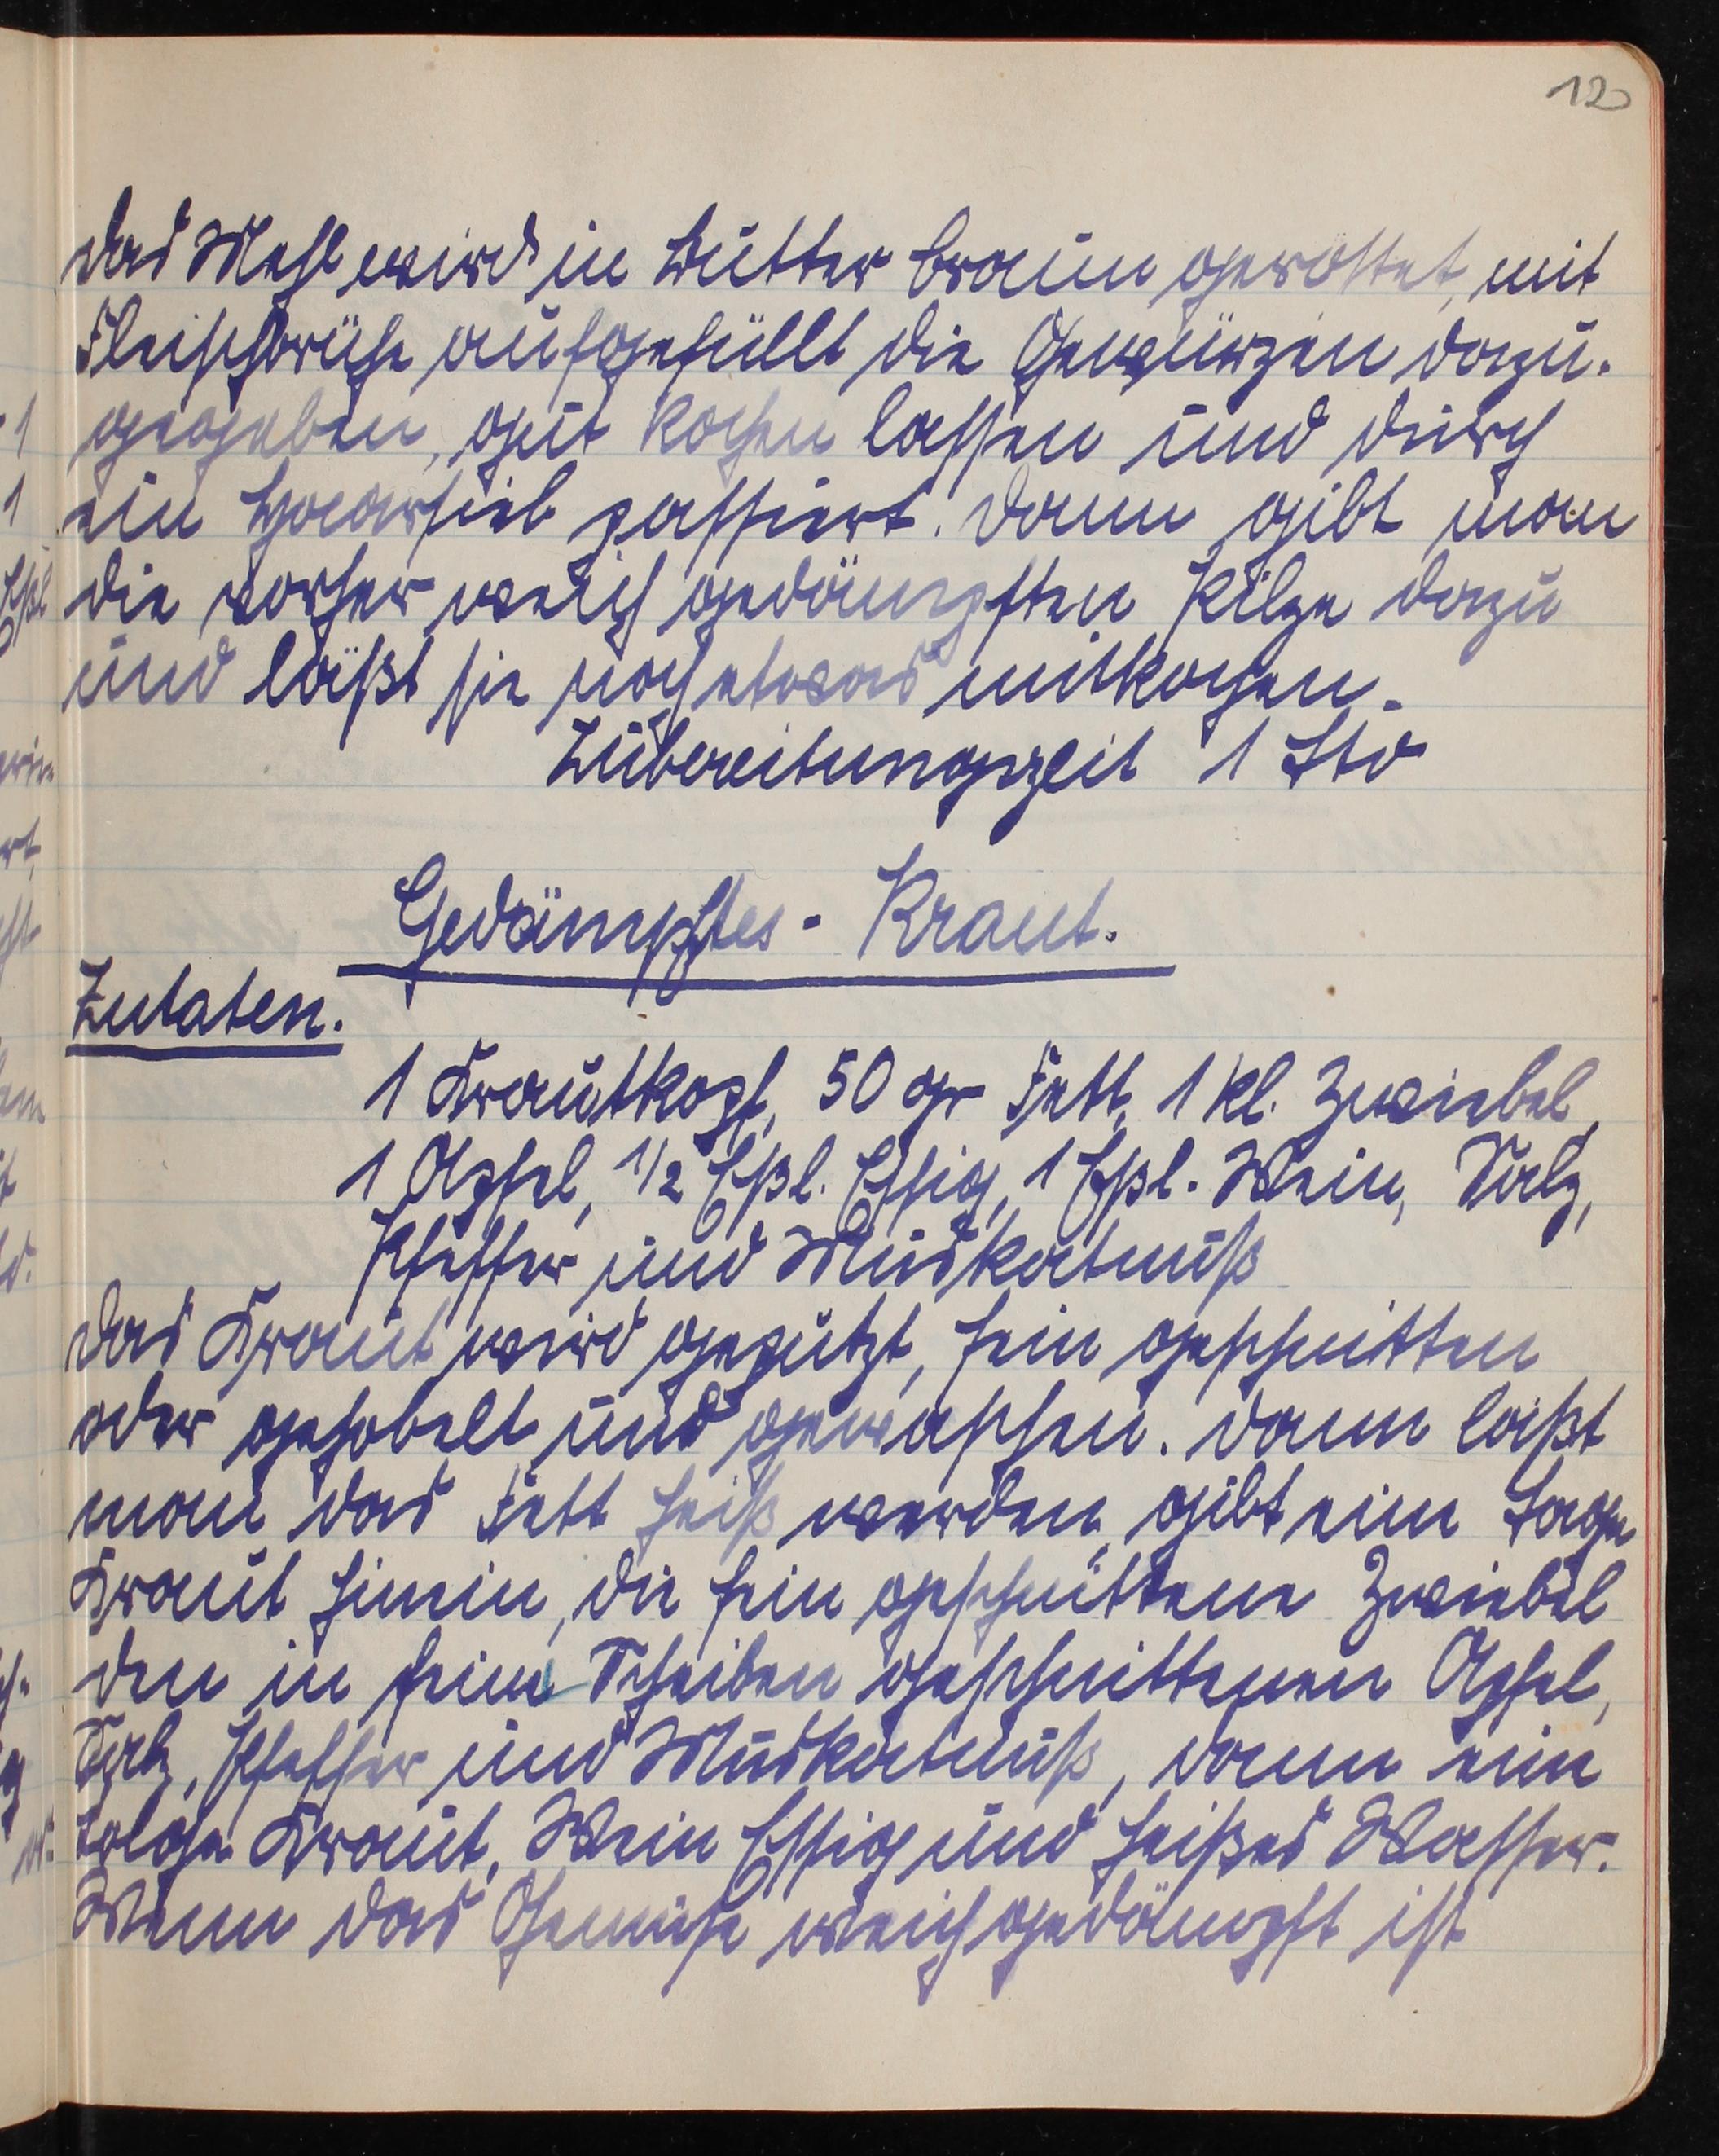 12
das Mehl wird in Butter braun geröstet, mit
Fleischbrühe aufgefüllt die Gewürzen dazu-
gegeben, gut kochen lassen und durch
ein Haarsieb passiert. Dann gibt man
die vorher weich gedämpften Pilze dazu
und läßt sie noch etwas mitkochen.
Zubereitungszeit 1 Std
Gedämpftes - Kraut.
Zutaten.
1 Krautkopf, 50 gr Fett, 1 kl. Zwiebel,
1 Apfel, 1/2 Eßl. Essig, 1 Eßl. Wein, Salz,
Pfeffer und Muskatnuß
das Kraut wird geputzt, fein geschnitten
oder gehobelt und gewaschen. Dann läßt
man das Fett heiß werden, gibt eine Lage
Kraut hinein, die fein geschnittene Zwiebel
den in feine Scheiben geschnittenen Apfel,
Salz, Pfeffer und Muskatnuß, dann eine
Kraut, Wein Essig und heißes Wasser.
Wenn das Gemüse weich gedämpft ist